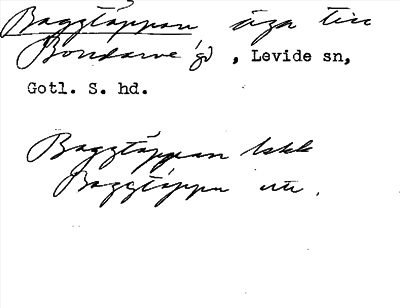 Baggtäppan äga till
Bondarve gd, Levide sn,
Gotl. S. hd.
Baggtäppan
Baggtäppu